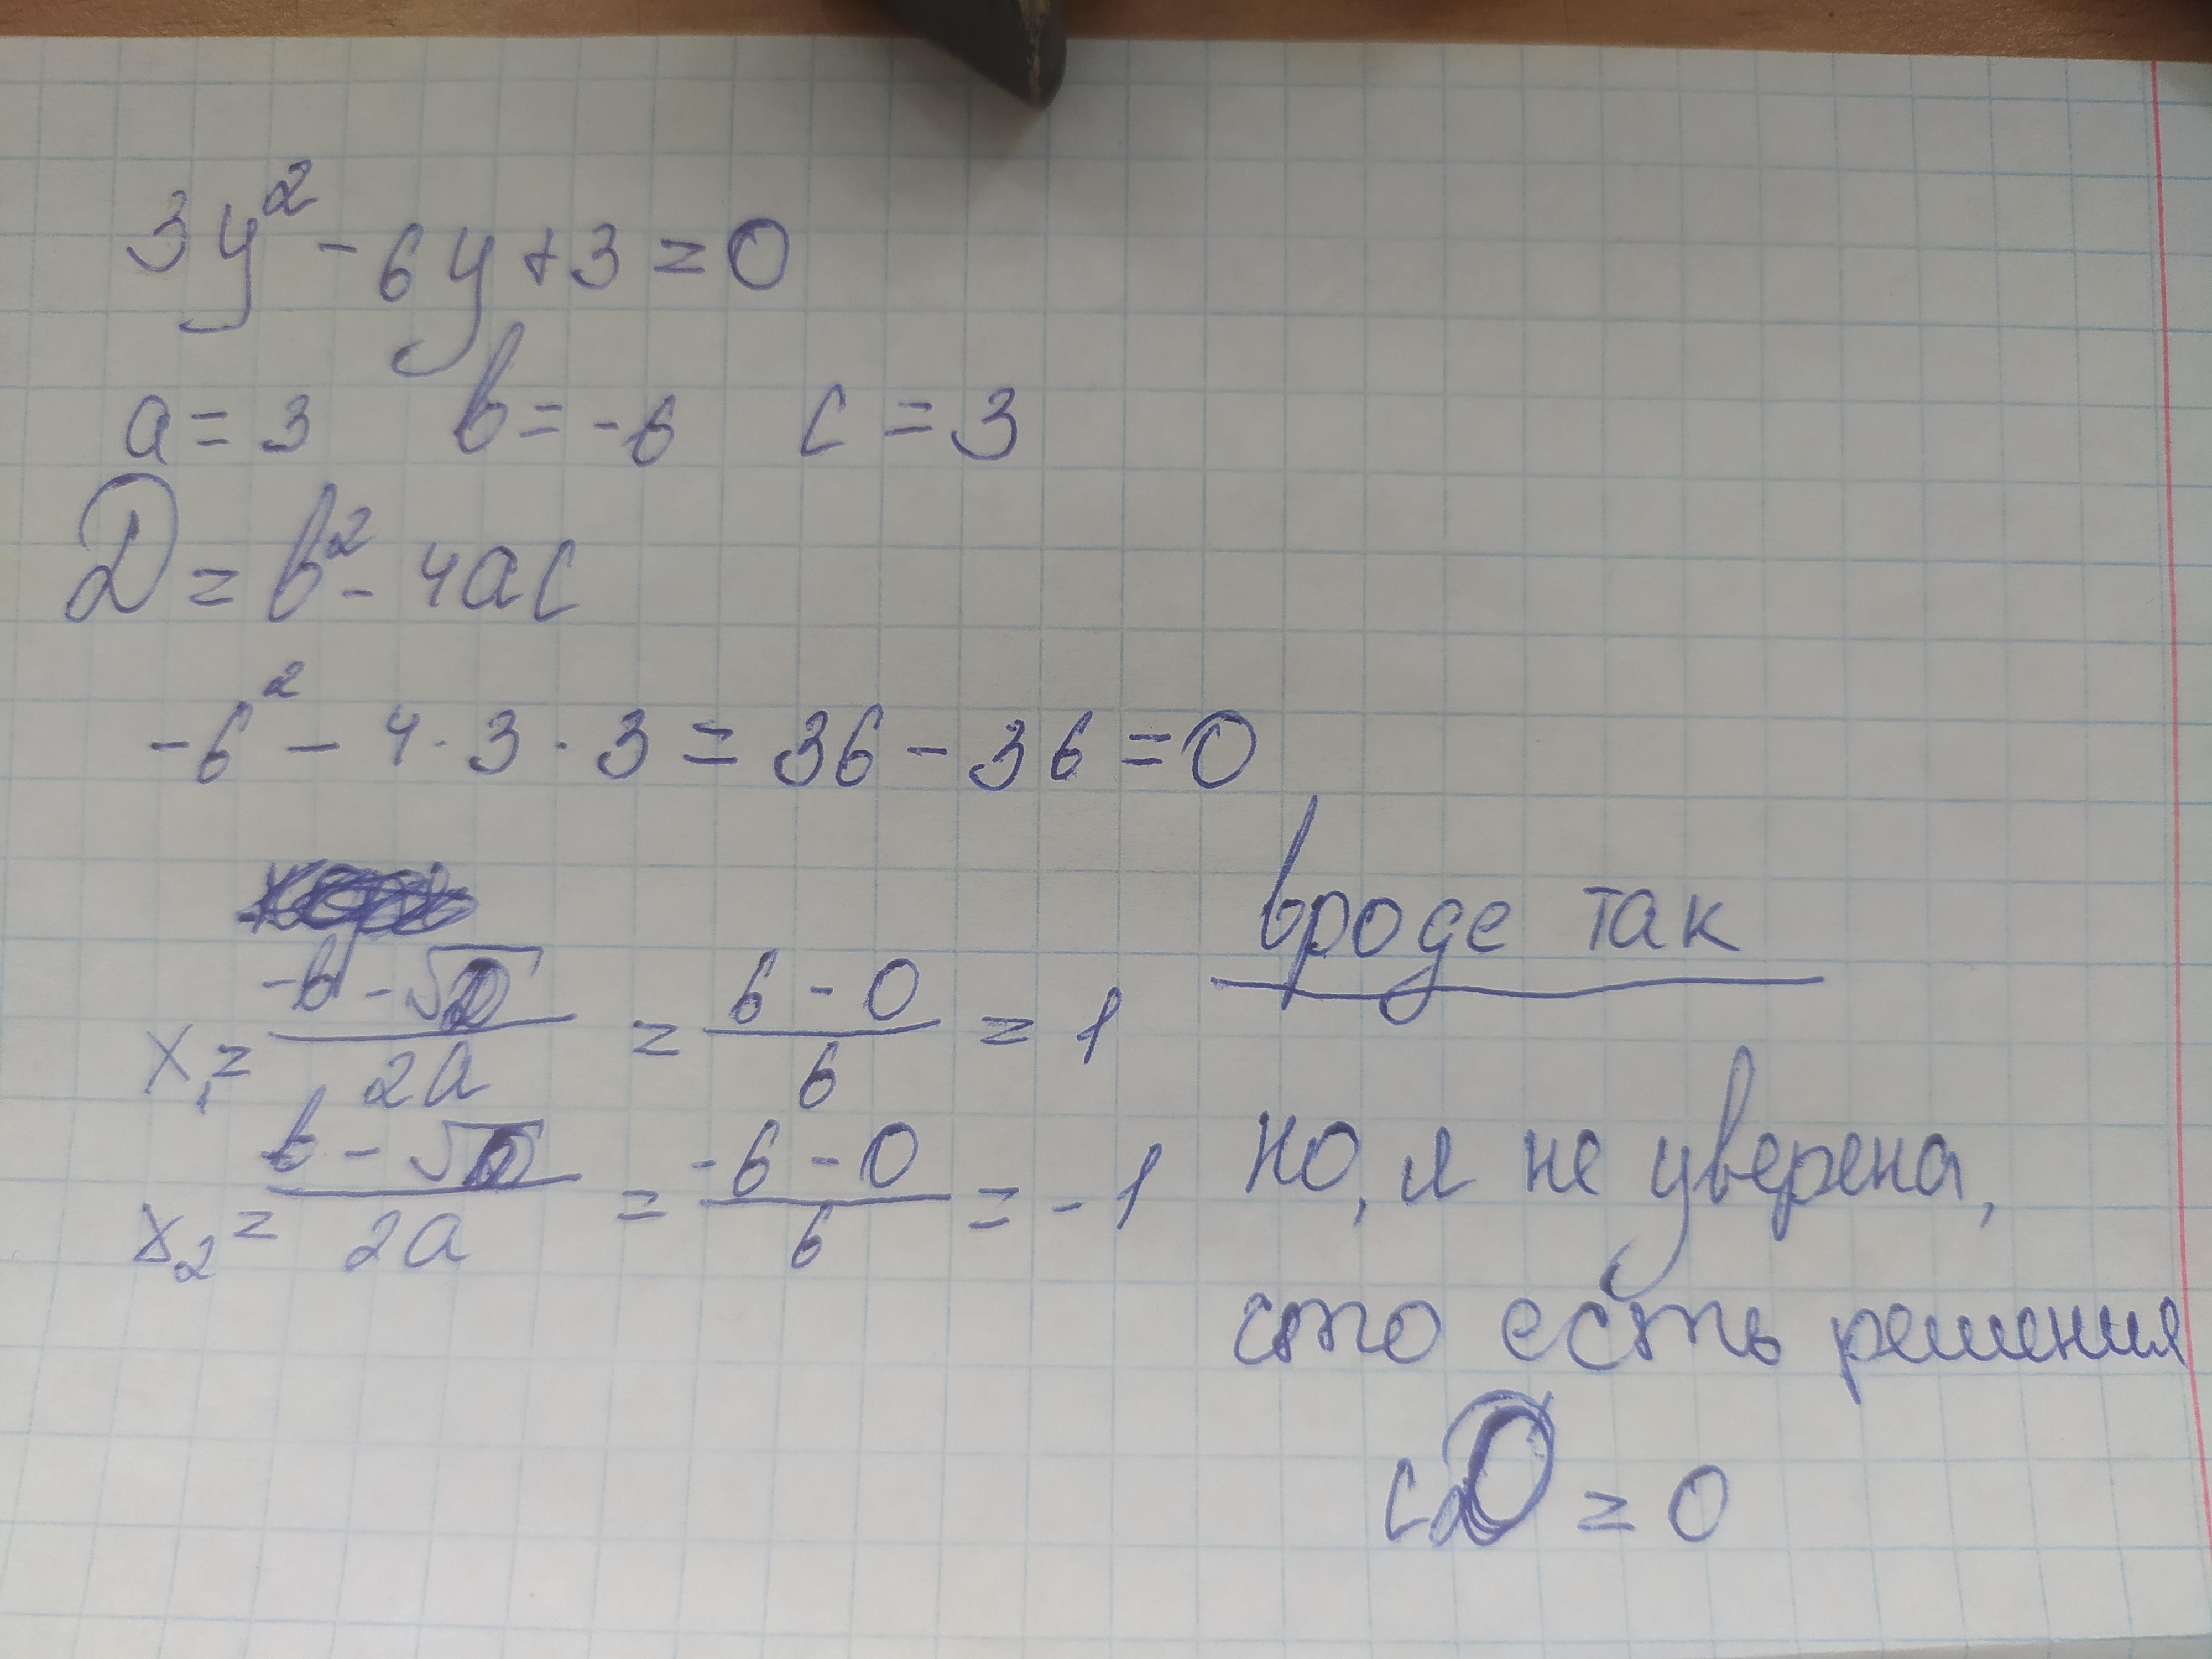 3y² - 6y + 3 = 0
a = 3 b = -6 c = 3
D = b² - 4ac
-6² - 4 · 3 · 3 = 36 - 36 = 0
x₁ = (-b - √D)/2a = (6 - 0)/6 = 1
x₂ = (b - √D)/2a = (-6 - 0)/6 = -1
вроде так
но, я не уверена,
что есть решения
с D = 0